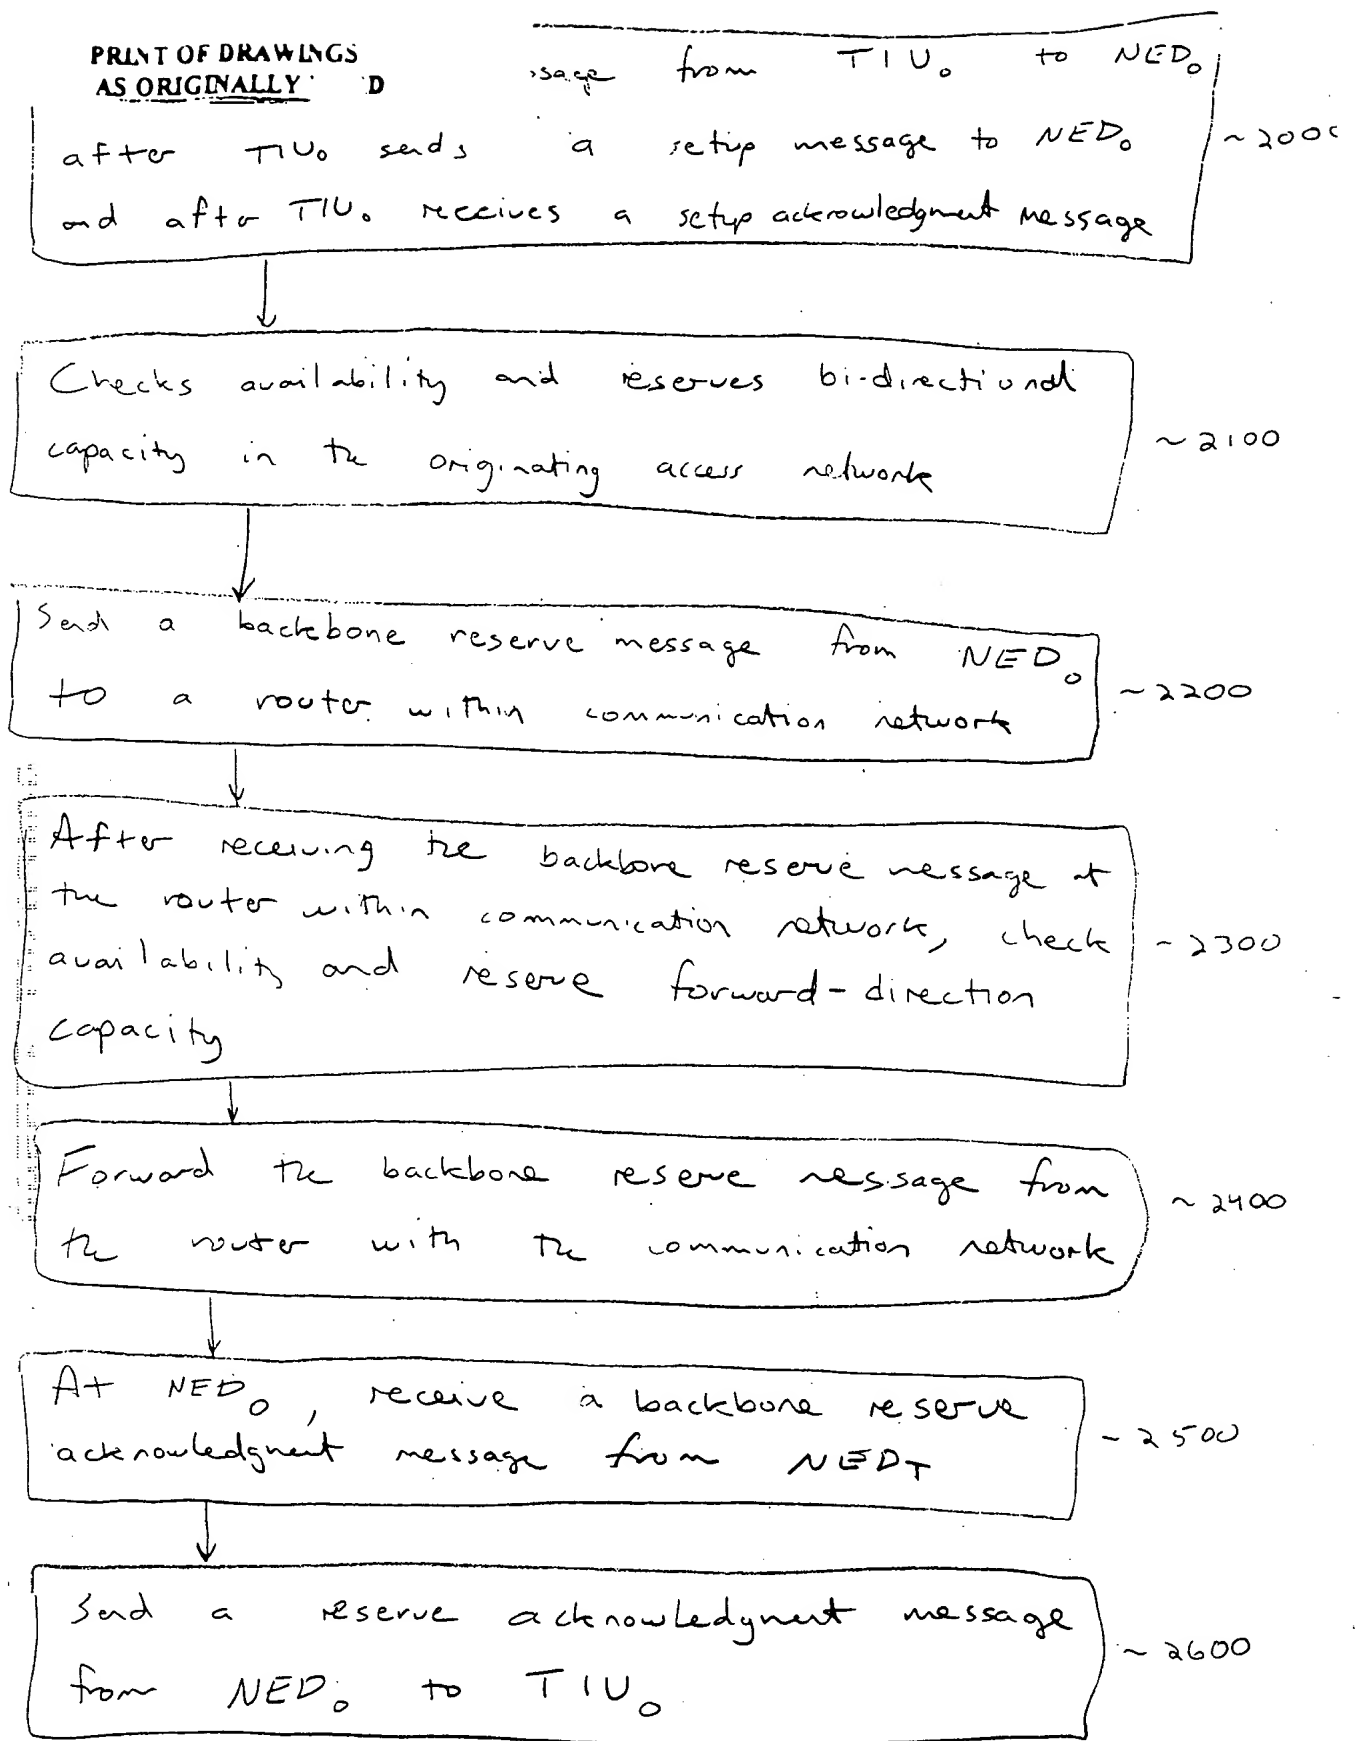 PRINT OF DRAWINGS
AS ORIGINALLY D
from TIU₀ to NED₀
after TIU₀ sends a setup message to NED₀
and after TIU₀ receives a setup acknowledgment message
~2000
Checks availability and reserves bi-directional
capacity in the originating access network
~2100
Send a backbone reserve message from NED₀
to a router within communication network
~2200
After receiving the backbone reserve message at
the router within communication network, check
availability and reserve forward-direction
capacity
~2300
Forward the backbone reserve message from
the router with the communication network
~2400
At NED₀, receive a backbone reserve
acknowledgment message from NEDT
~2500
Send a reserve acknowledgment message
from NED₀ to TIU₀
~2600